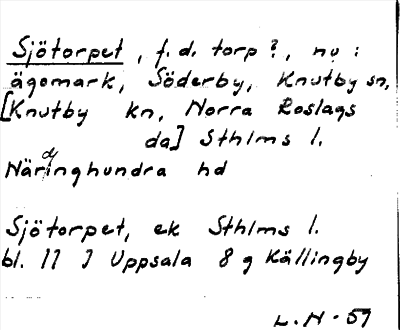 Sjötorpet, f.d. torp?, nu:
ägomark, Söderby, Knutby sn,
[Knutby kn, Norra Roslags
da] Sthlms l.
Närdinghundra hd
Sjötorpet, ek Sthlms l.
bl. 11 J Uppsala 8 g Källingby
L.H-59